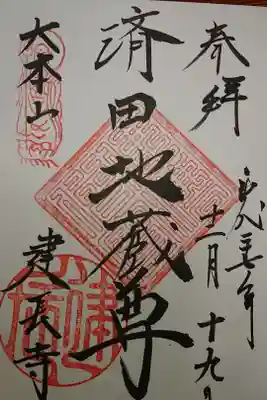 奉拝
平成二十七年
十一月十九日
済田地蔵尊
大本山
建長寺